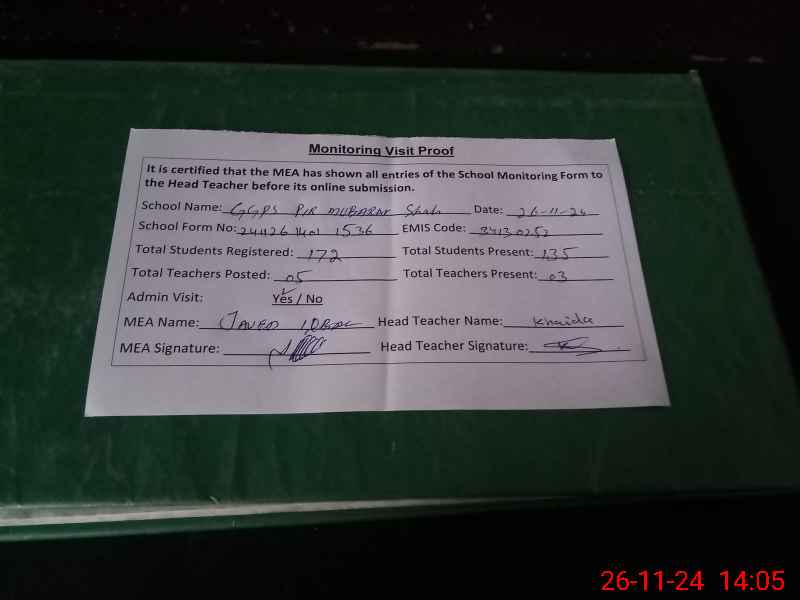 Monitoring Visit Proof
It is certified that the MEA has shown all entries of the School Monitoring Form to
the Head Teacher before its online submission.
School Name: GGPS PIR MUBARAK Shah Date: 26-11-24
School Form No: 241126 1401 1536 EMIS Code:
Total Students Registered: 172 Total Students Present: 135
Total Teachers Posted: 05 Total Teachers Present: 03
Admin Visit: Yes / No
MEA Name: JAVED IQBAL Head Teacher Name:
MEA Signature: Head Teacher Signature:
26-11-24 14:05